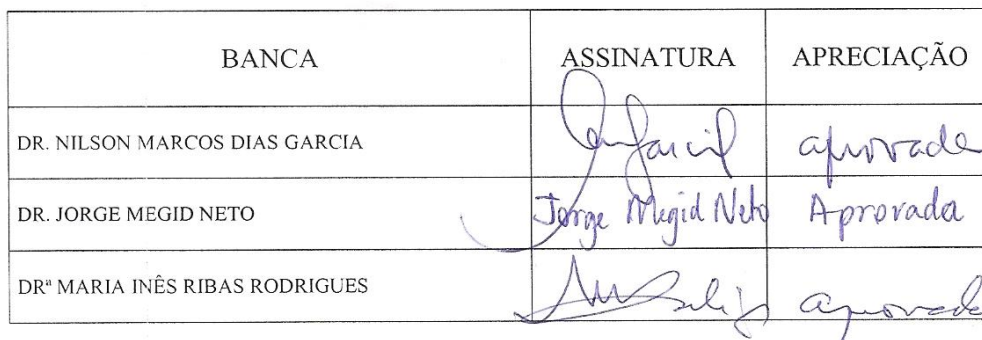 BANCA ASSINATURA APRECIAÇÃO
DR. NILSON MARCOS DIAS GARCIA aprovada
DR. JORGE MEGID NETO Jorge Megid Neto Aprovada
DRª MARIA INÊS RIBAS RODRIGUES aprovada